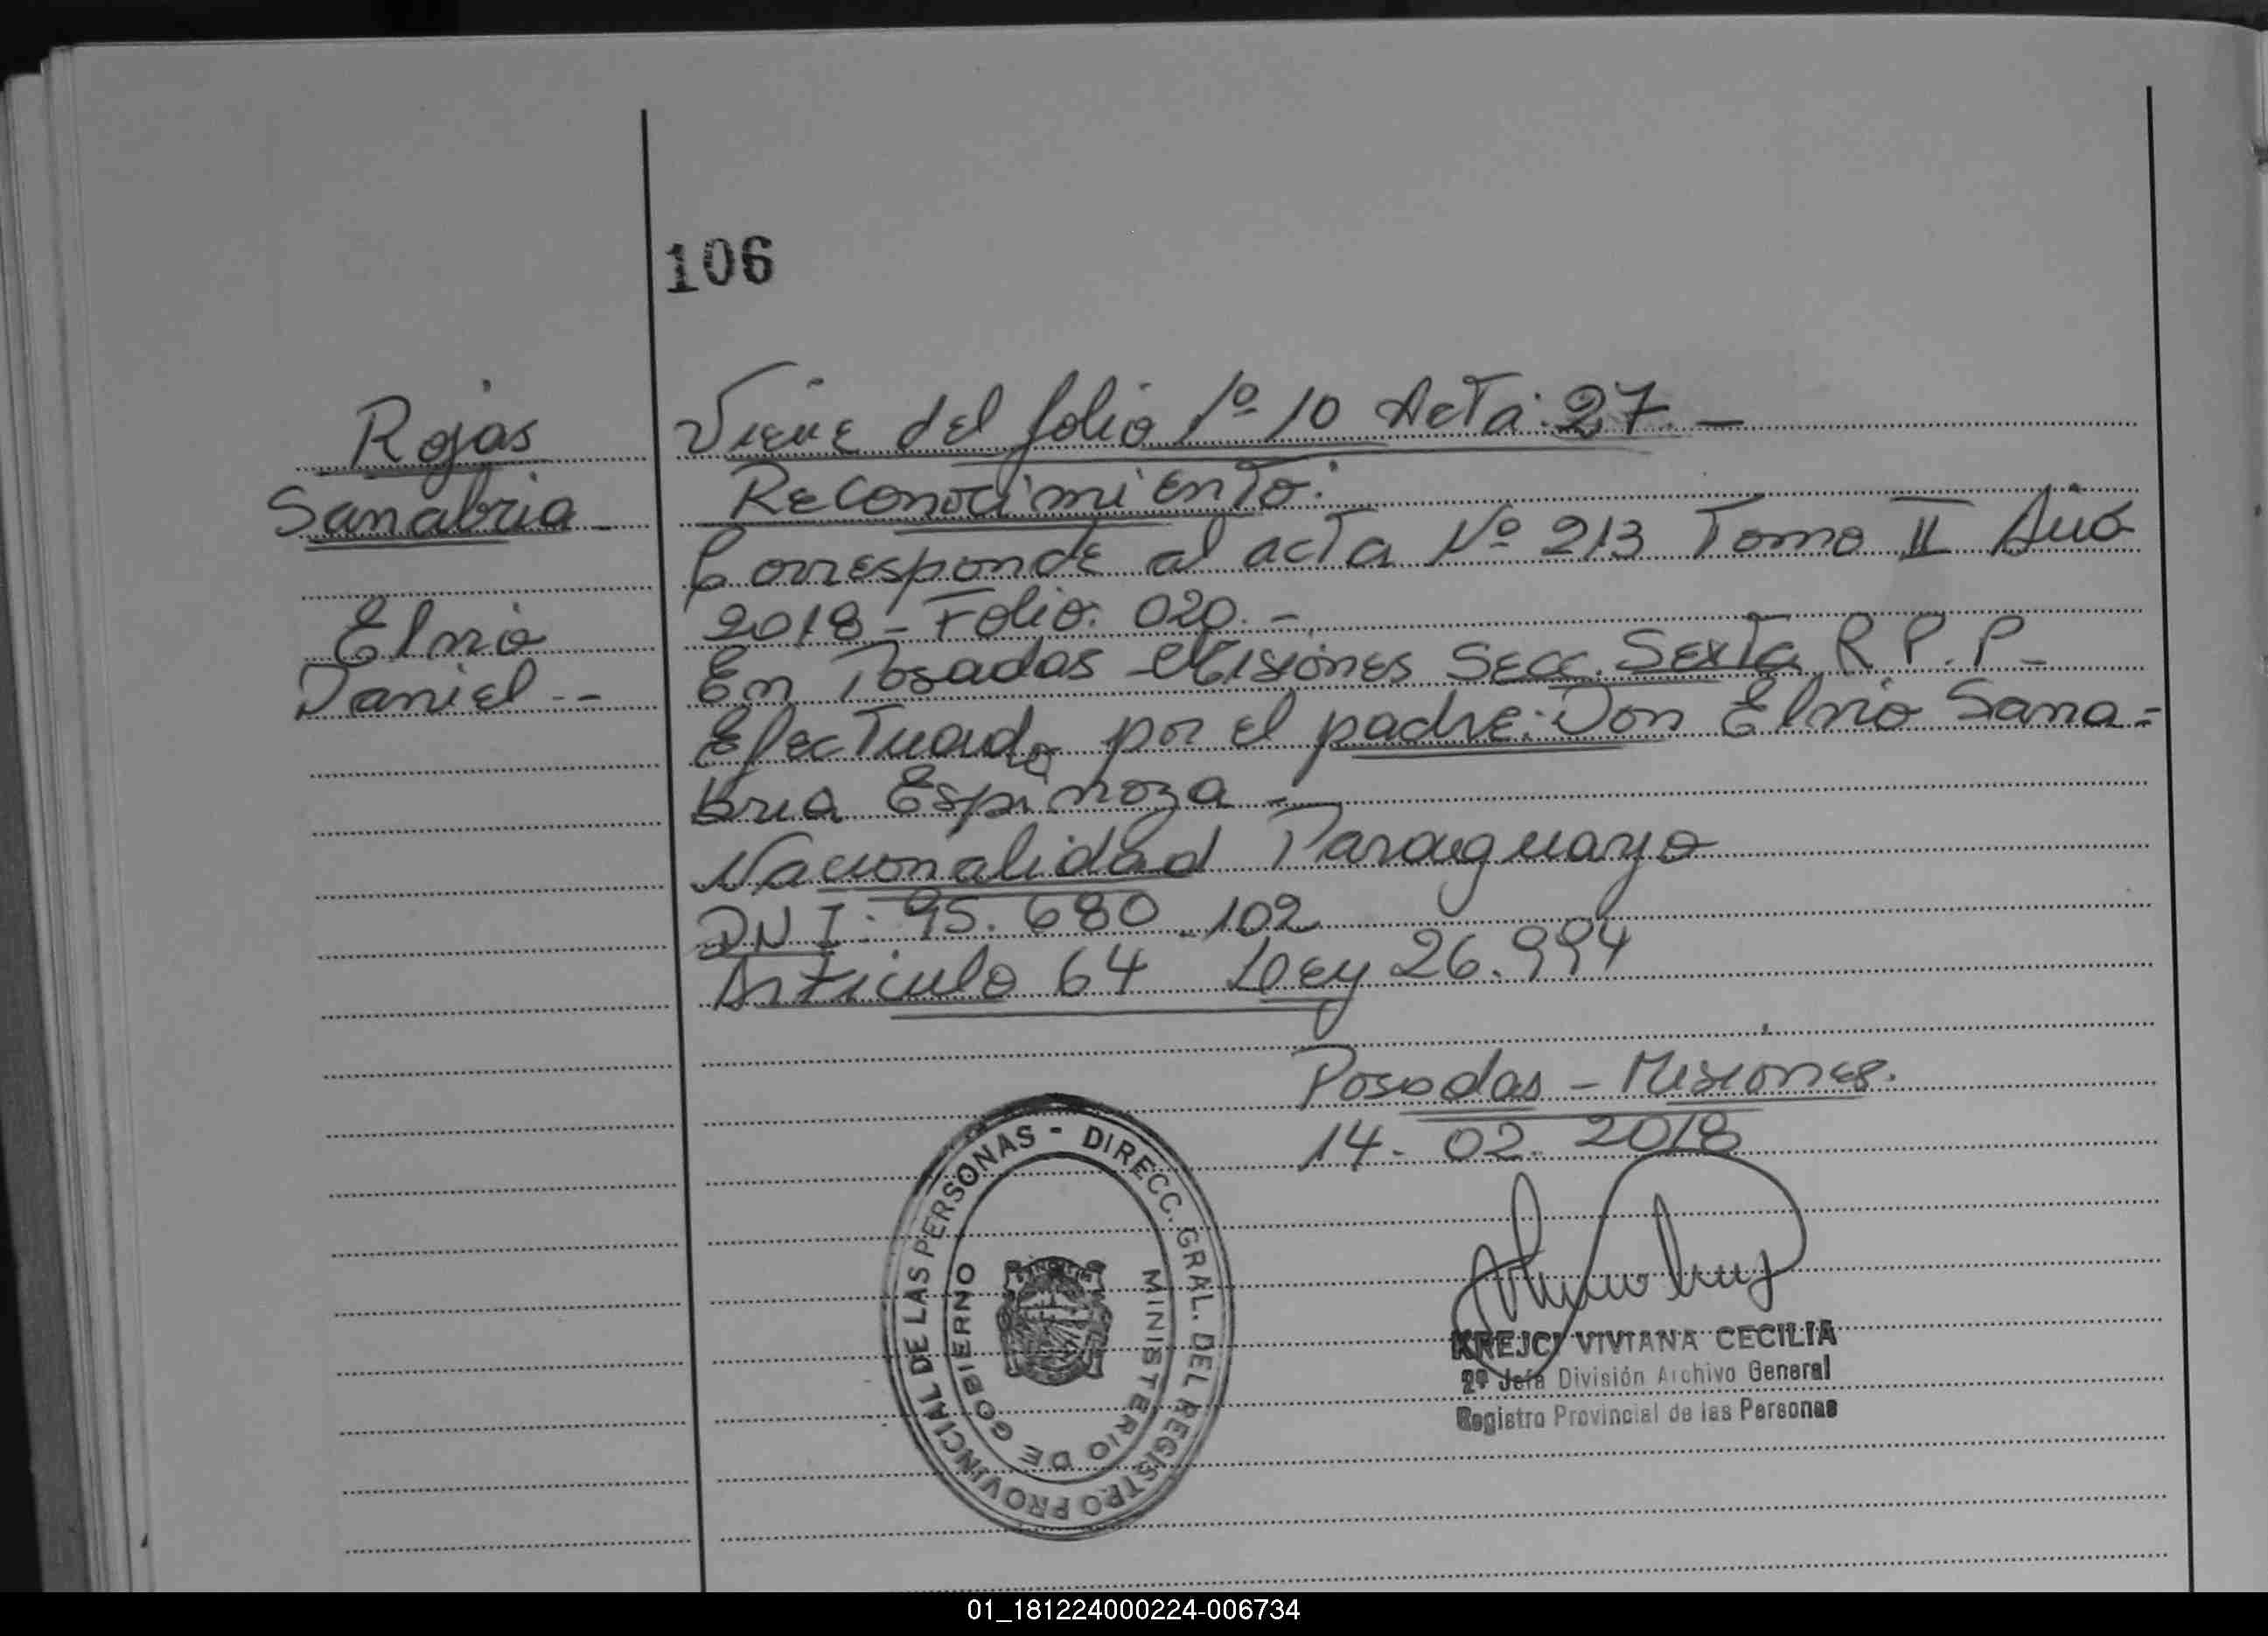 106
Rojas
Sanabria -
Elvio
Daniel --
Viene del folio 1º 10 Acta: 27. -
Reconocimiento:
Corresponde al acta Nº 213 Tomo II Año
2018 - Folio: 020. -
En Posadas Misiones Secc. Sexta R.P.P. -
Efectuado por el padre: Don Elvio Sana=
bria Espinoza -
Nacionalidad Paraguayo
DNI: 95.680.102
Articulo 64 Ley 26.994
Posadas - Misiones.
14. 02. 2018
DIRECC. GRAL. DEL REGISTRO PROVINCIAL DE LAS PERSONAS -
MINISTERIO DE GOBIERNO
KREJCI VIVIANA CECILIA
2º Jefa División Archivo General
Registro Provincial de las Personas
01_181224000224-006734